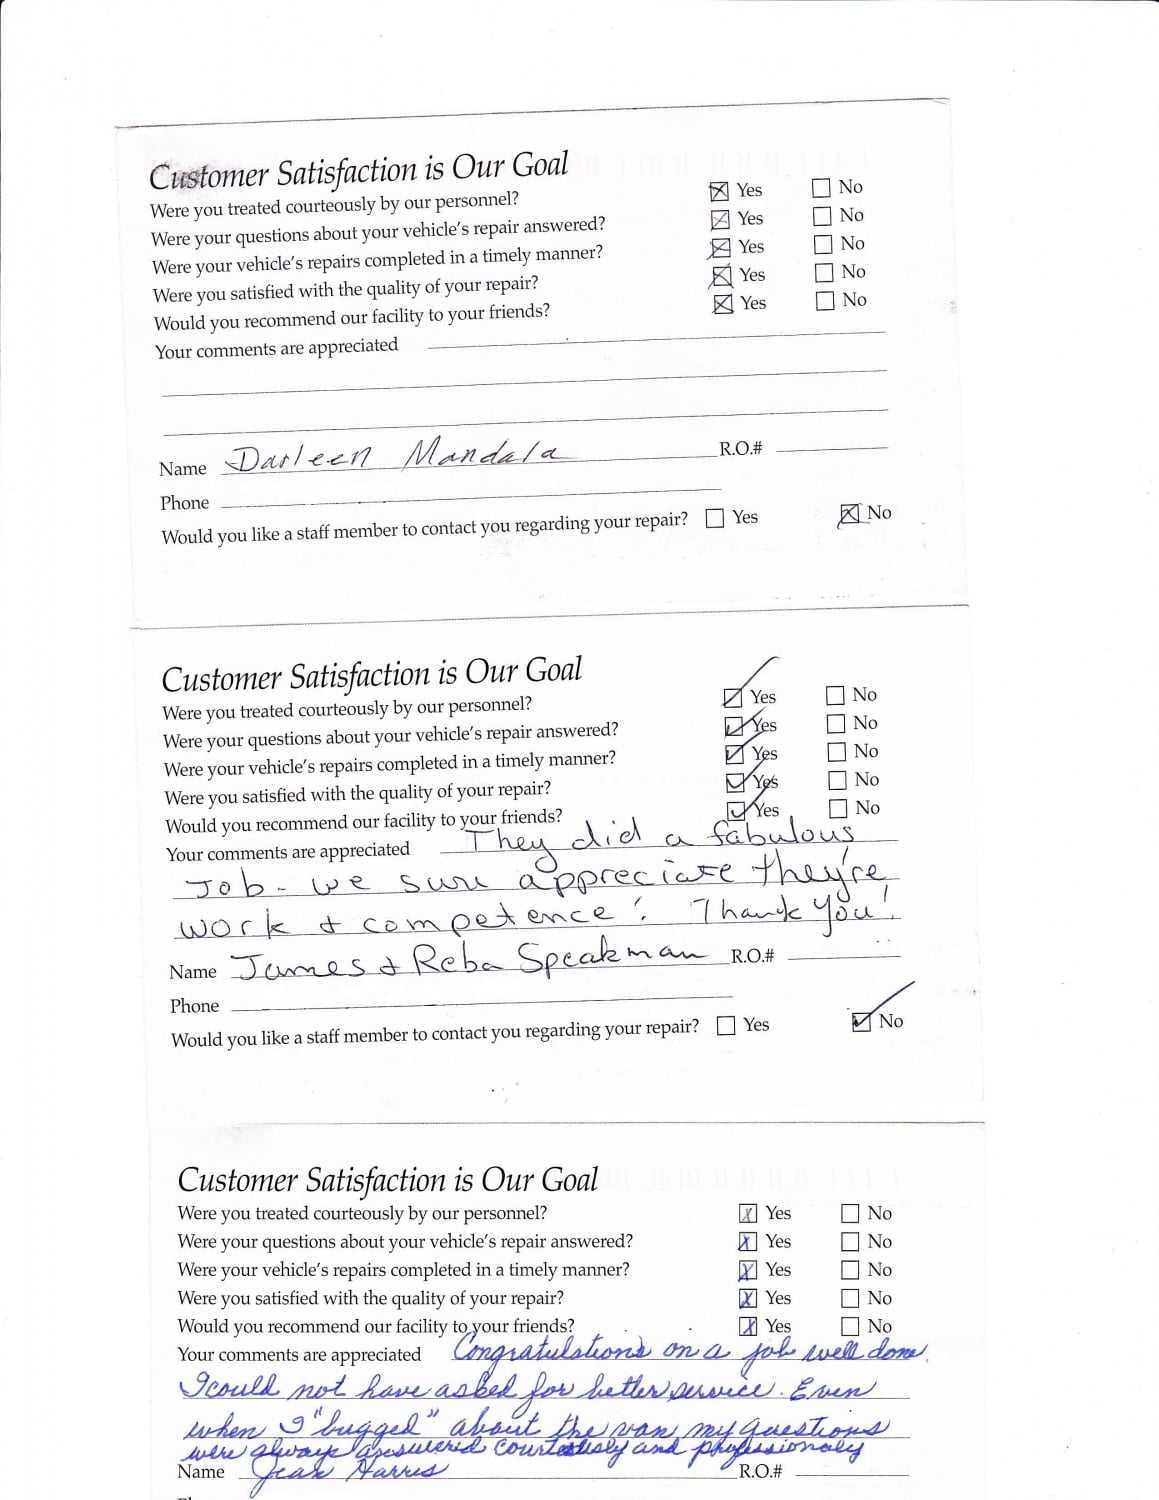 Customer Satisfaction is Our Goal
Were you treated courteously by our personnel? ☒ Yes ☐ No
Were your questions about your vehicle's repair answered? ☒ Yes ☐ No
Were your vehicle's repairs completed in a timely manner? ☒ Yes ☐ No
Were you satisfied with the quality of your repair? ☒ Yes ☐ No
Would you recommend our facility to your friends? ☒ Yes ☐ No
Your comments are appreciated
Name Darleen Mandala R.O.#
Phone
Would you like a staff member to contact you regarding your repair? ☐ Yes ☒ No
Customer Satisfaction is Our Goal
Were you treated courteously by our personnel? ☑ Yes ☐ No
Were your questions about your vehicle's repair answered? ☑ Yes ☐ No
Were your vehicle's repairs completed in a timely manner? ☑ Yes ☐ No
Were you satisfied with the quality of your repair? ☑ Yes ☐ No
Would you recommend our facility to your friends? ☑ Yes ☐ No
Your comments are appreciated They did a fabulous
Job - we sure appreciate they're
work & competence! Thank you!
Name James & Reba Speakman R.O.#
Phone
Would you like a staff member to contact you regarding your repair? ☐ Yes ☑ No
Customer Satisfaction is Our Goal
Were you treated courteously by our personnel? ☒ Yes ☐ No
Were your questions about your vehicle's repair answered? ☒ Yes ☐ No
Were your vehicle's repairs completed in a timely manner? ☒ Yes ☐ No
Were you satisfied with the quality of your repair? ☒ Yes ☐ No
Would you recommend our facility to your friends? ☒ Yes ☐ No
Your comments are appreciated Congratulations on a job well done.
I could not have asked for better service. Even
when I "bugged" about the van my questions
were always answered courteously and professionaly
Name Jean Harris R.O.#